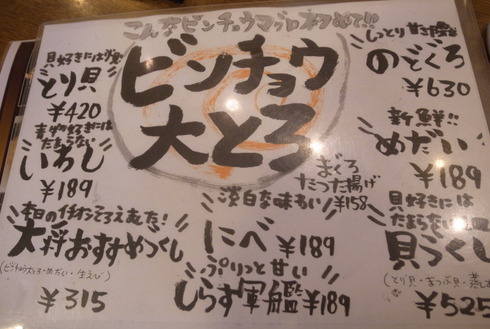 こんなビンチョウマグロ初めて!!
ビンチョウ
大とろ
貝好きには
とり貝
¥420
青物好きには
たまらない
いわし
¥189
本日のイチオシそろえました!
大将おすすめづくし
(ビンチョウ大とろ・めだい・生えび)
¥315
しっとり甘き
のどぐろ
¥630
新鮮!!
めだい
¥189
まぐろ
たつた揚げ
¥158
淡白な味わい
にべ ¥189
ぷりっと甘い
しらす軍艦 ¥189
貝好きには
たまらない
貝づくし
(とり貝・まつぶ貝・蒸し
¥525